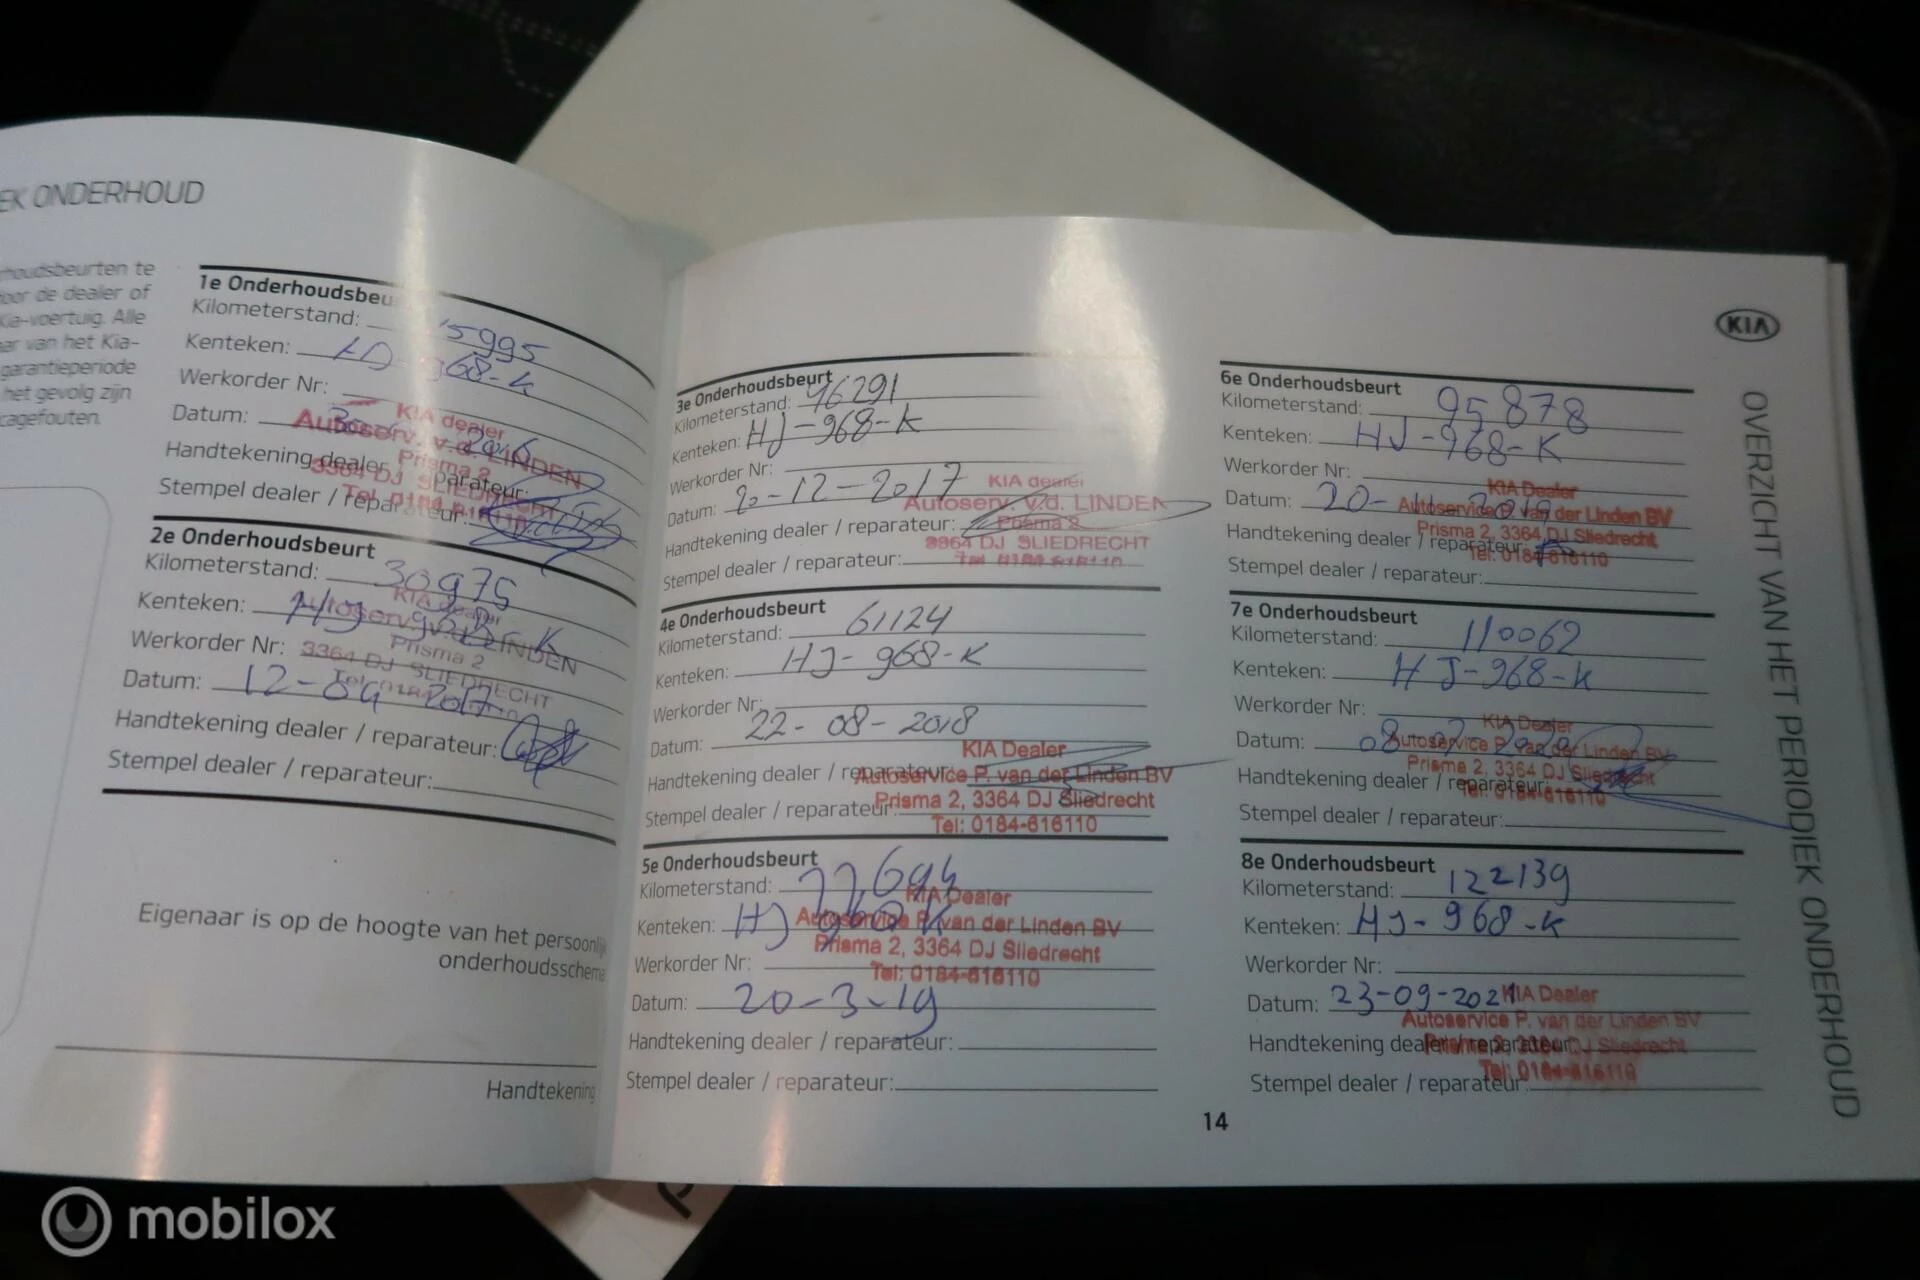 EK ONDERHOUD
rhoudsbeurten te
oor de dealer of
Kia-voertuig. Alle
ar van het Kia-
garantieperiode
het gevolg zijn
cagefouten.
1e Onderhoudsbeu
Kilometerstand: 15995
Kenteken: 968-K
Werkorder Nr:
Datum: 2016
Handtekening dealer / reparateur:
Stempel dealer / reparateur:
KIA dealer
Autoserv. v.d. LINDEN
Prisma 2
3364 DJ SLIEDRECHT
Tel. 0184-616110
2e Onderhoudsbeurt
Kilometerstand: 30975
Kenteken: HJ-968-K
Werkorder Nr:
Datum: 12-04-2017
Handtekening dealer / reparateur:
Stempel dealer / reparateur:
KIA dealer
Autoserv. v.d. LINDEN
Prisma 2
3364 DJ SLIEDRECHT
Eigenaar is op de hoogte van het persoonlijk
onderhoudsschema
Handtekening
3e Onderhoudsbeurt
Kilometerstand: 46291
Kenteken: HJ-968-K
Werkorder Nr:
Datum: 20-12-2017
Handtekening dealer / reparateur:
Stempel dealer / reparateur:
KIA dealer
Autoserv. v.d. LINDEN
Prisma 2
3364 DJ SLIEDRECHT
Tel 0184-616110
4e Onderhoudsbeurt
Kilometerstand: 61124
Kenteken: HJ-968-K
Werkorder Nr:
Datum: 22-08-2018
Handtekening dealer / reparateur:
Stempel dealer / reparateur:
KIA Dealer
Autoservice P. van der Linden BV
Prisma 2, 3364 DJ Sliedrecht
Tel: 0184-616110
5e Onderhoudsbeurt
Kilometerstand: 77694
Kenteken: HJ 968 K
Werkorder Nr:
Datum: 20-3-19
Handtekening dealer / reparateur:
Stempel dealer / reparateur:
KIA Dealer
Autoservice P. van der Linden BV
Prisma 2, 3364 DJ Sliedrecht
Tel: 0184-616110
6e Onderhoudsbeurt
Kilometerstand: 95878
Kenteken: HJ-968-K
Werkorder Nr:
Datum: 20- 2019
Handtekening dealer / reparateur:
Stempel dealer / reparateur:
KIA Dealer
Autoservice P. van der Linden BV
Prisma 2, 3364 DJ Sliedrecht
Tel: 0184-616110
7e Onderhoudsbeurt
Kilometerstand: 110062
Kenteken: HJ-968-K
Werkorder Nr:
Datum: 08
Handtekening dealer / reparateur:
Stempel dealer / reparateur:
KIA Dealer
Autoservice P. van der Linden BV
Prisma 2, 3364 DJ Sliedrecht
Tel: 0184-616110
8e Onderhoudsbeurt
Kilometerstand: 122139
Kenteken: HJ-968-K
Werkorder Nr:
Datum: 23-09-2021
Handtekening dealer / reparateur:
Stempel dealer / reparateur:
KIA Dealer
Autoservice P. van der Linden BV
Prisma 2, 3364 DJ Sliedrecht
Tel: 0184-616110
14
KIA
OVERZICHT VAN HET PERIODIEK ONDERHOUD
mobilox